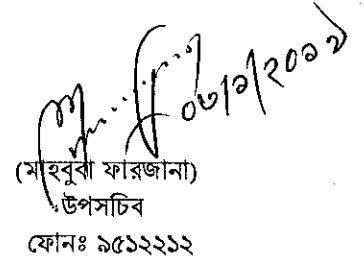 ০৩/১/২০১১
(মাহবুবা ফারজানা)
উপসচিব
ফোনঃ ৯৫১২২১২